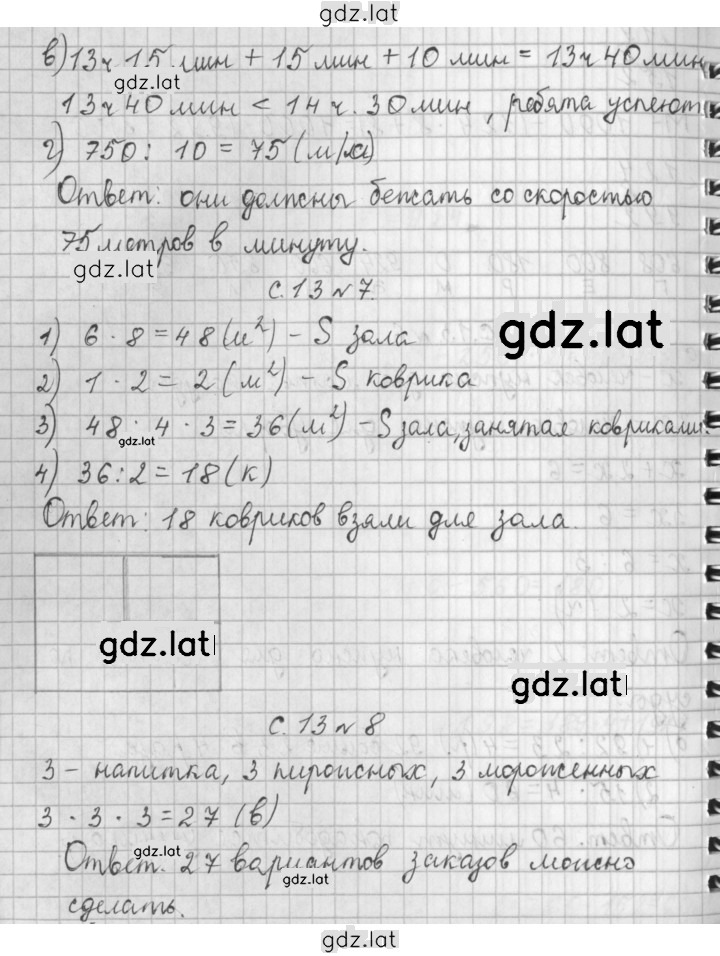 gdz.lat
в) 13ч 15 мин + 15 мин + 10 мин = 13ч 40 мин
gdz.lat
13ч 40 мин < 14 ч. 30 мин, ребята успеют
г) 750 : 10 = 75 (м/м)
Ответ: они должны бежать со скоростью
75 метров в минуту.
gdz.lat
с. 13 № 7.
1) 6 · 8 = 48 (м²) – S зала
gdz.lat
2) 1 · 2 = 2 (м²) – S коврика
3) 48 : 4 · 3 = 36 (м²) – S зала, занятая ковриками.
gdz.lat
4) 36 : 2 = 18 (к)
Ответ: 18 ковриков взяли для зала.
gdz.lat
gdz.lat
с. 13 № 8
3 – напитка, 3 пироженных, 3 мороженных
3 · 3 · 3 = 27 (в)
gdz.lat
Ответ. 27 вариантов заказов можно
gdz.lat
сделать.
gdz.lat